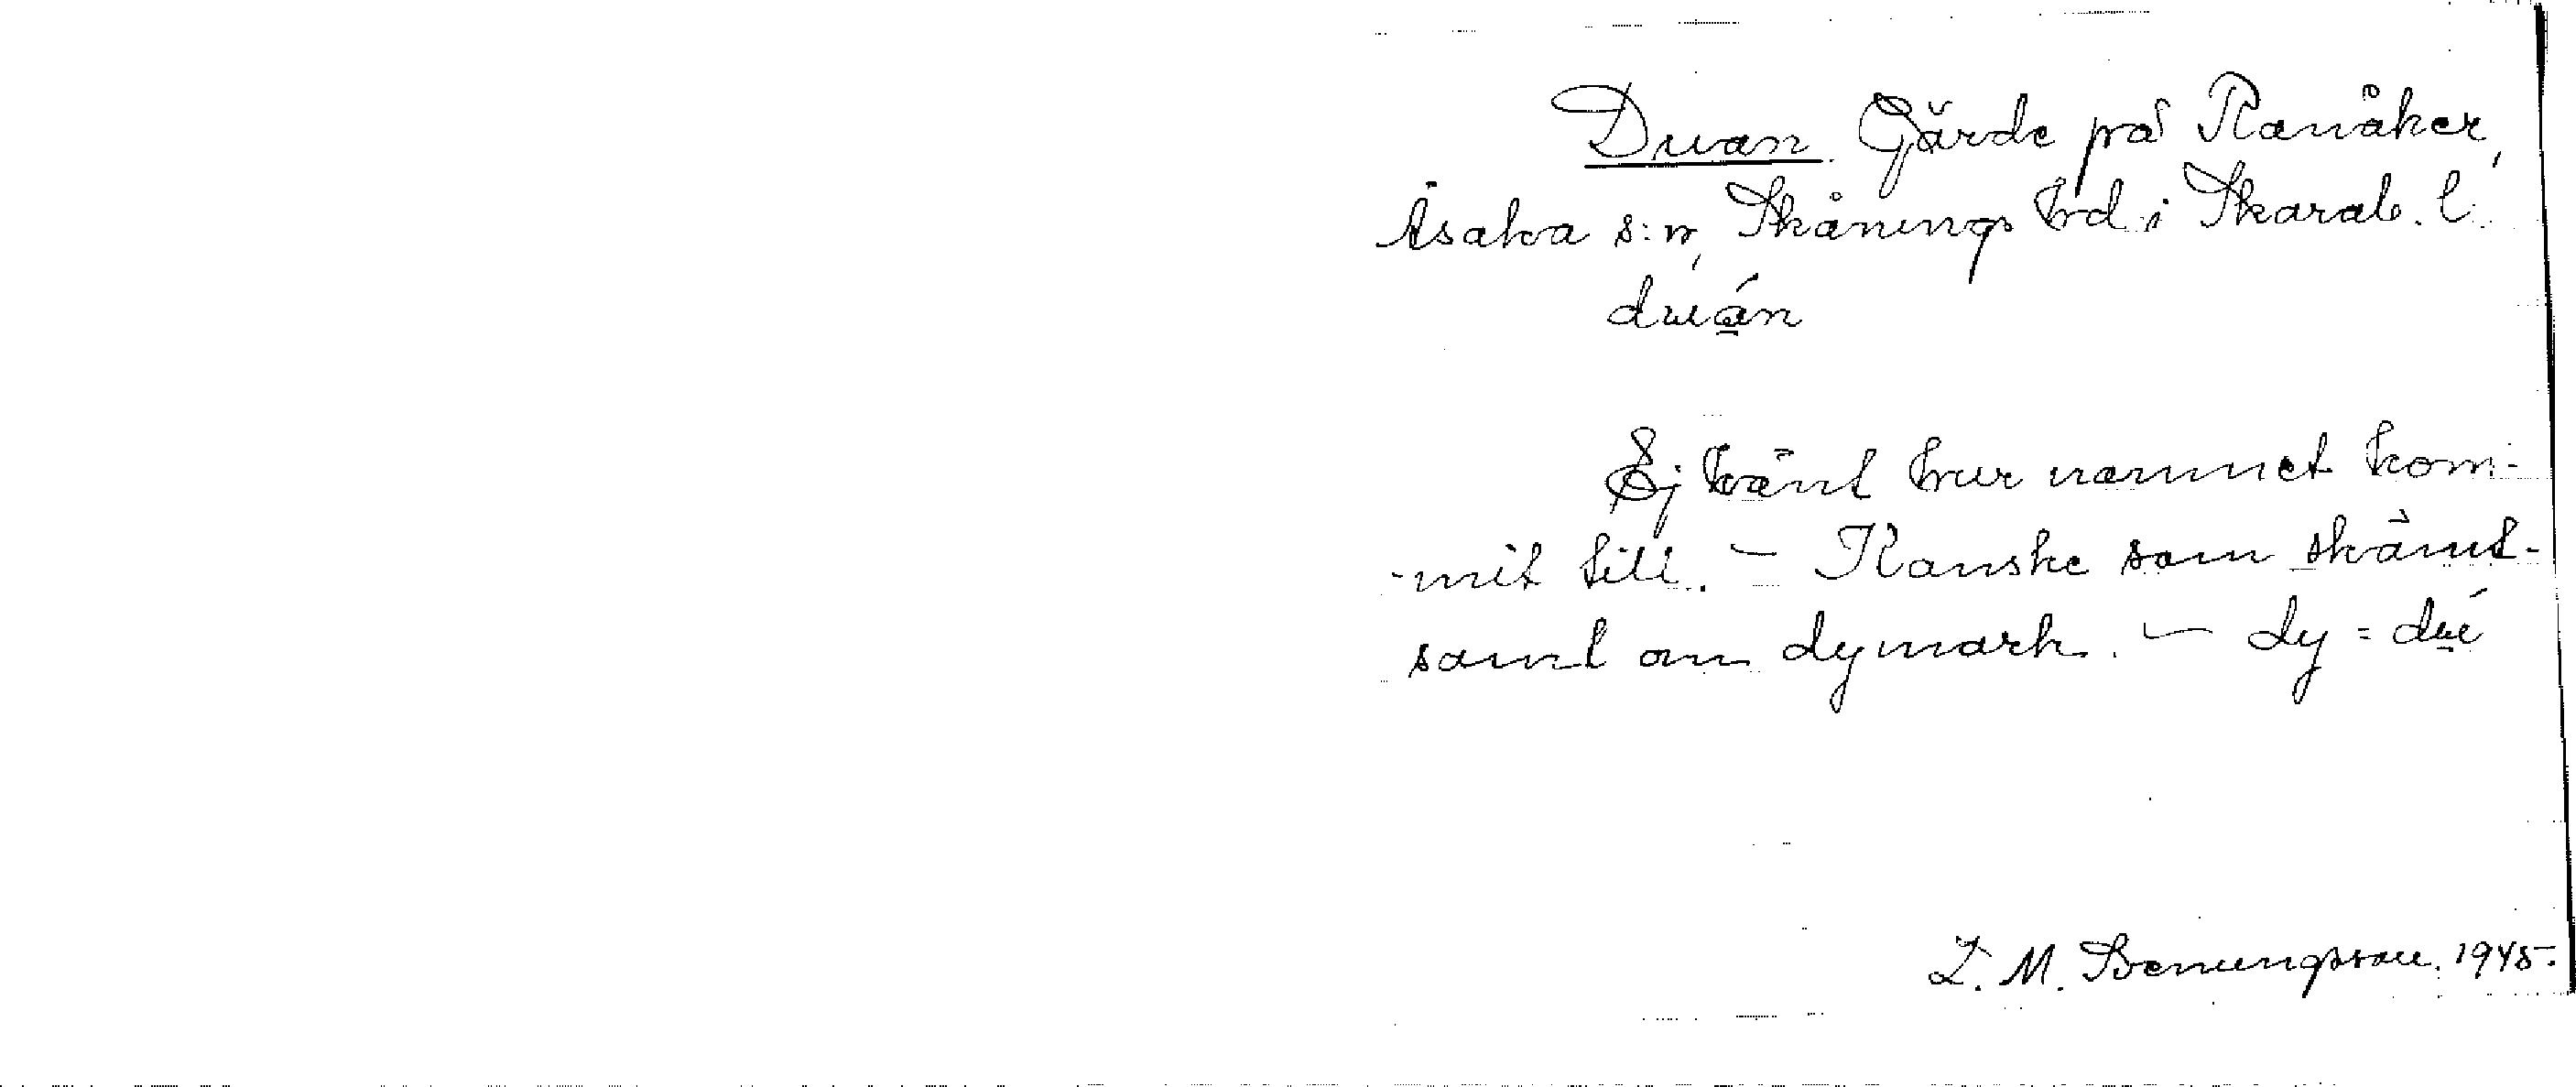 Duan. Gärde på Ranåker,
Åsaka s:n, Skånings hd i Skarab. l.
duán
Ej känt hur namnet kom-
-mit till. – Kanske som skämt-
samt om dymark. – dy = dué
L. M. Svenungsson. 1945.